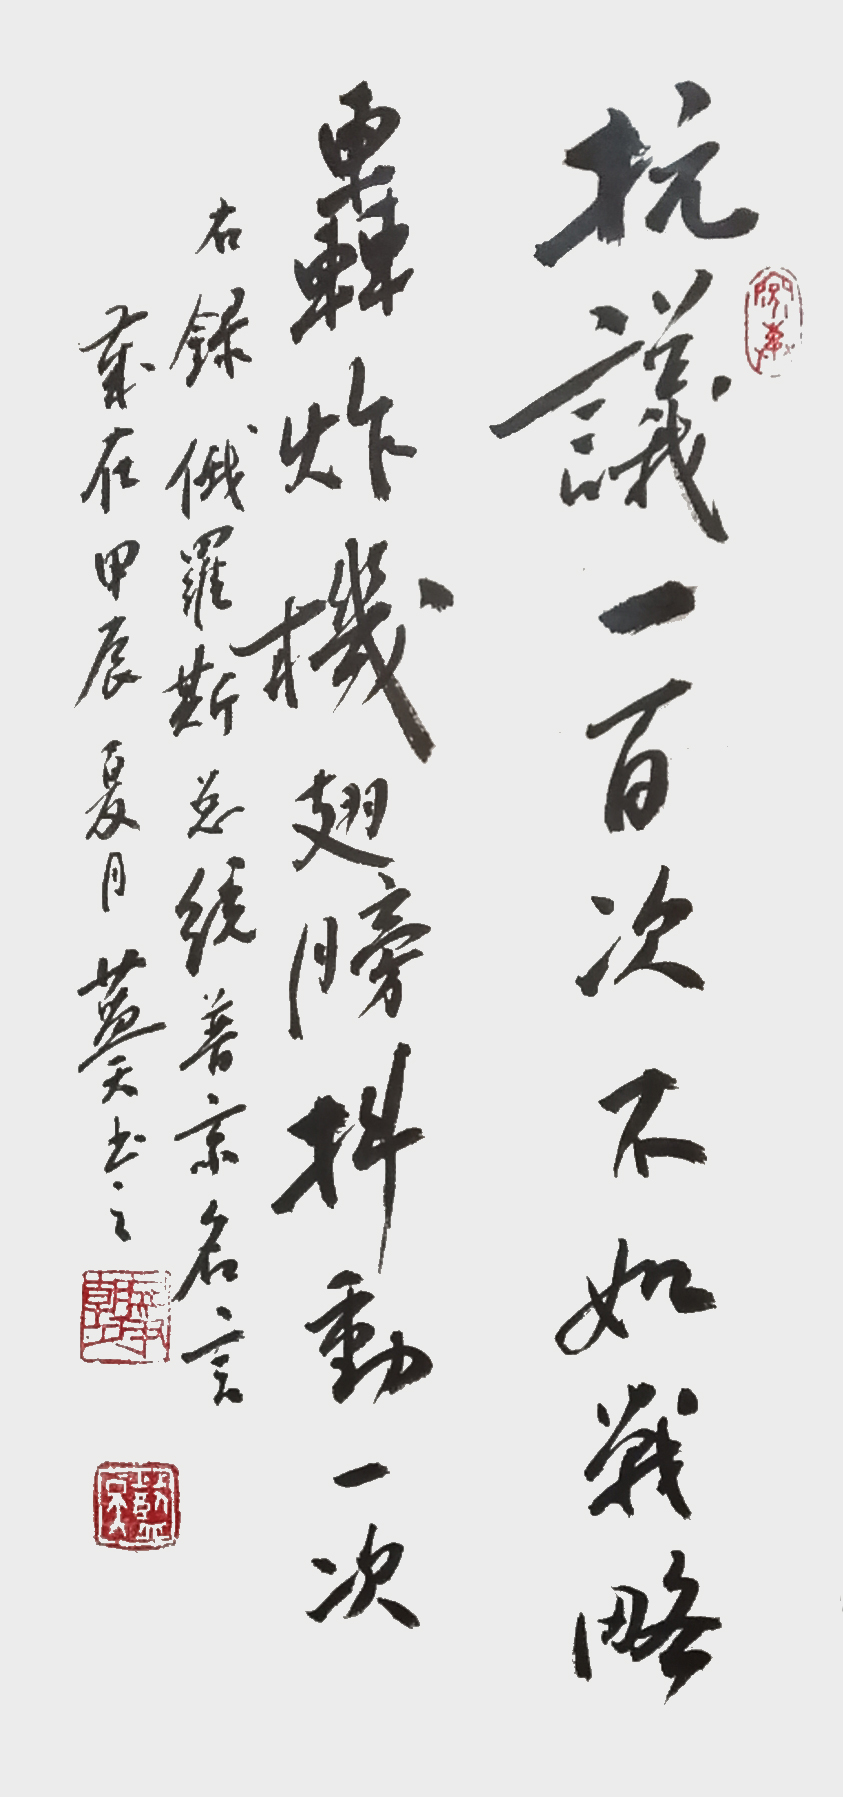 抗議一百次不如戰略
轟炸機翅膀抖動一次
右錄俄羅斯总統普京名言
歲在甲辰夏月藍天书之